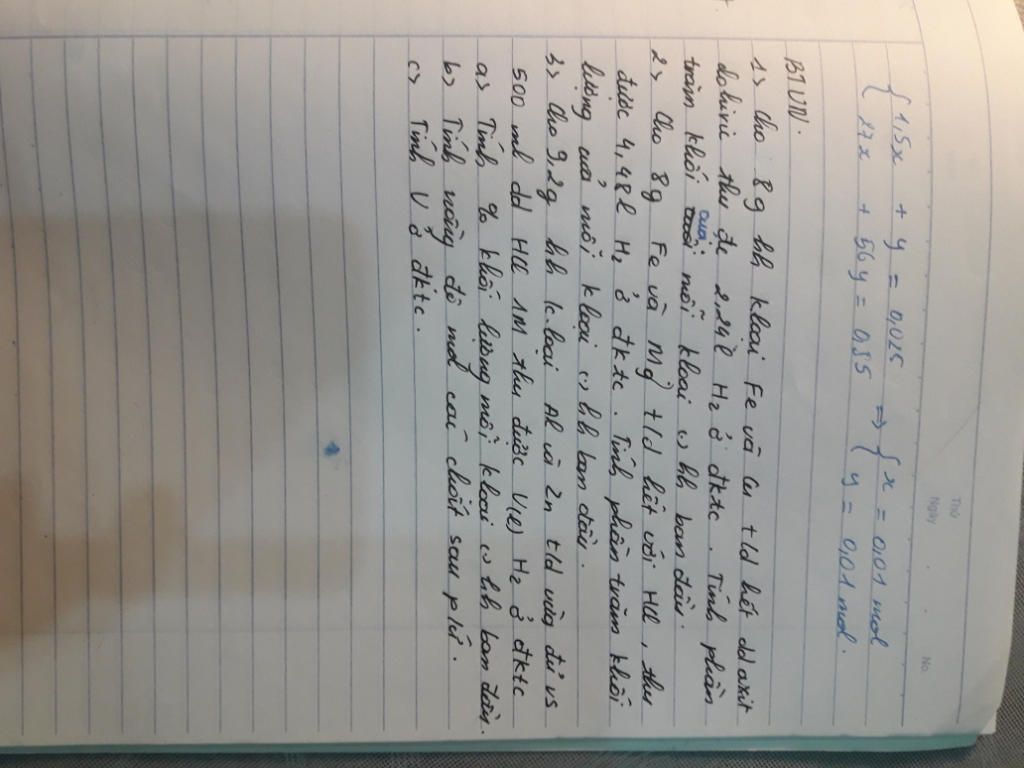 Thứ
Ngày
No.
{ 1,5x + y = 0,025 => { x = 0,01 mol
{ 27x + 56y = 0,83 { y = 0,01 mol.
BTVN.
1> Cho 8g hh kloại Fe và Cu t/d hết dd axit
clohiric thu đc 2,24l H2 ở đktc. Tính phần
trăm khối của mỗi kloại ω hh ban đầu.
2> Cho 8g Fe và Mg t/d hết với HCl, thu
được 4,48l H2 ở đktc. Tính phần trăm khối
lượng của mỗi kloại ω hh ban đầu.
3> Cho 9,2g hh k.loại Al và Zn t/d vừa đủ vs
500 ml dd HCl 1M thu được V(l) H2 ở đktc
a> Tính % khối lượng mỗi kloại ω hh ban đầu.
b> Tính nồng độ mol các chất sau p/ứ.
c> Tính V ở đktc.